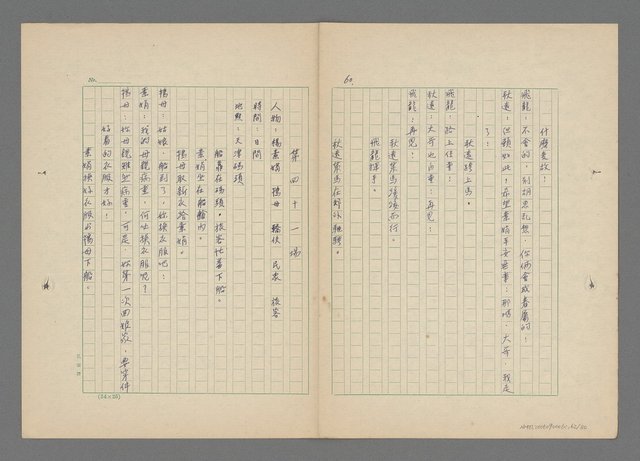 60.
什麼變故!
飛龍:不會的,別胡思亂想,你倆會成眷屬的!
秋遠:但願如此,希望素娟平安無事!那嗎,大哥,我走
了!
秋遠躍上馬。
飛龍:路上保重!
秋遠:大哥也保重!再見!
飛龍:再見!
秋遠策馬緩緩而行。
飛龍揮手。
秋遠策馬在野外馳騁。
No.
第四十一場
人物:楊素娟 楊母 轎伕 民衆 旅客
時間:日間
地點:天津碼頭
船靠在碼頭,旅客忙著下船。
素娟坐在船艙內。
楊母取新衣給素娟。
楊母:姑娘,船到了,妳換衣服吧!
素娟:我的母親病重,何必換衣服呢?
楊母:妳母親雖然病重,可是,妳第一次回娘家,要穿件
好看的衣服才好!
素娟換好衣服與楊母下船。
(24×25)